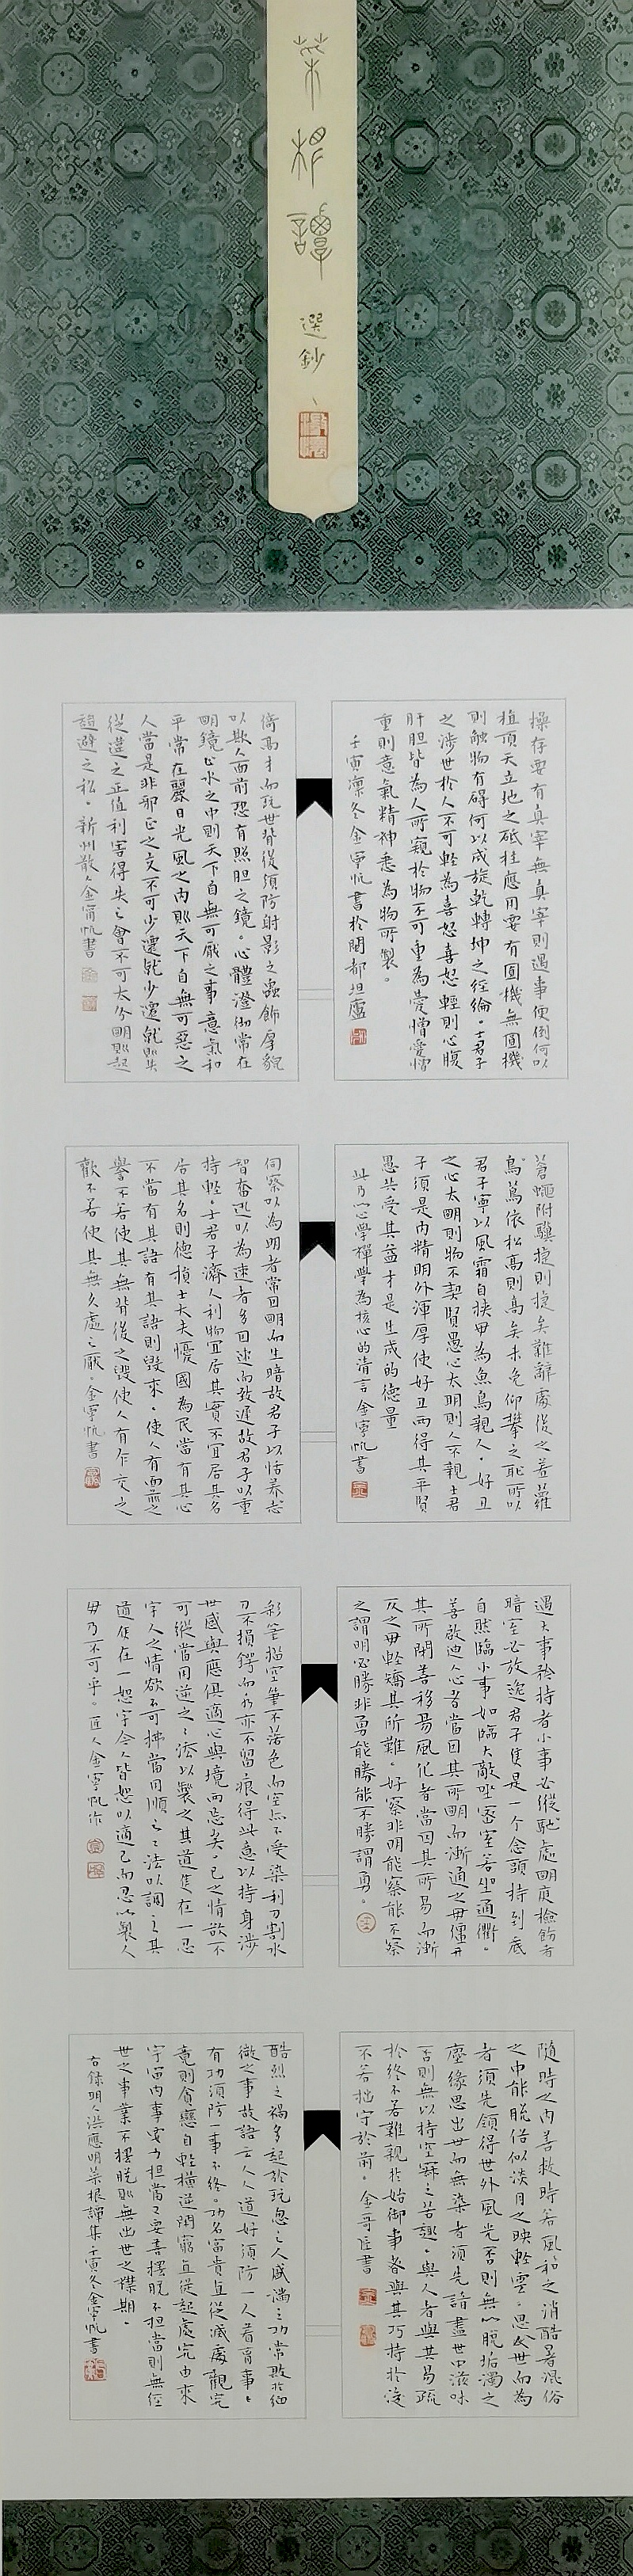 菜根譚 選鈔
操存要有真宰無真宰則遇事便倒何以
植頂天立地之砥柱應用要有圓機無圓機
則触物有碍何以成旋乾轉坤之經綸。士君子
之涉世於人不可輕為喜怒喜怒輕則心腹
肝胆皆為人所窺於物不可重為愛憎愛憎
重則意氣精神悉為物所製。
壬寅凛冬金寧帆書於閩都坦廬
倚高才而玩世背後須防射影之蟲飾厚貌
以欺人面前恐有照胆之鏡。心體澄徹常在
明鏡止水之中則天下自無可厭之事意氣和
平常在麗日光風之内則天下自無可惡之
人當是非邪正之交不可少遷就少遷就則失
從違之正值利害得失之會不可太分明則起
趨避之私。新州散人金甯帆書
蒼蠅附驥捷則捷矣難辭處後之羞蘿
蔦依松高則高矣未免仰攀之恥所以
君子寧以風霜自挟毋為魚鳥親人。好丑
之心太明則物不契賢愚心太明則人不親士君
子須是内精明外渾厚使好丑兩得其平賢
愚共受其益才是生成的德量
此乃心學禪學為核心的清言金寧帆書
伺察以為明者常因明而生暗故君子以恬養志
智奮迅以為速者多因速而致遲故君子以重
持輕。士君子濟人利物宜居其實不宜居其名
居其名則德損士大夫憂國為民當有其心
不當有其語有其語則毁來。使人有面前之
譽不若使其無背後之毁使人有乍交之
歡不若使其無久處之厭。金寧帆書
遇大事矜持者小事必縱弛處明庭檢飭者
暗室必放逸君子隻是一个念頭持到底
自然臨小事如臨大敵坐密室若坐通衢。
善啟迪人心者當因其所明而漸通之毋僵開
其所閉善移易風化者當因其所易而漸
反之毋輕矯其所難。好察非明能察能不察
之謂明必勝非勇能勝能不勝謂勇。
彩筆描空筆不落色而空亦不受染利刀割水
刀不損鍔而水亦不留痕得此意以持身涉
世感與應俱適心與境兩忘矣。己之情欲不
可縱當用逆之之法以製之其道隻在一忍
字人之情欲不可拂當用順之之法以調之其
道隻在一恕字今人皆恕以適己而忍以製人
毋乃不可乎。匠人金寧帆作
隨時之内善救時若風和之消酷暑混俗
之中能脱俗似淡月之映輕雲。思入世而為
者須先領得世外風光否則無以脱垢濁之
塵緣思出世而無染者須先諳盡世中滋味
否則無以持空寂之苦趣。與人者與其易疏
於終不若難親於始御事者與其巧持於後
不若拙守於前。金哥匠書
酷烈之禍多起於玩忽之人盛滿之功常敗於細
微之事故語云人人道好須防一人着脑事事
有功須防一事不終。功名富貴直從滅處觀究
竟則貪戀自輕橫逆困窮直從起處究由來
宇宙内事要力担當又要善擺脱不担當則無經
世之事業不擺脱則無出世之襟期。
右錄明人洪應明菜根譚集壬寅冬金寧帆書